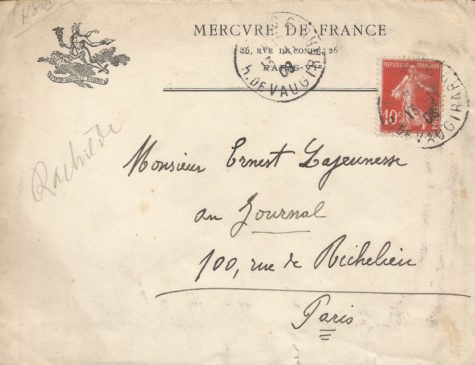 MERCVRE DE FRANCE
26, RVE DE CONDÉ, 26
PARIS
R. DE VAUGIRARD
08
REPUBLIQUE FRANÇAISE
10c
Rachilde
Monsieur Ernest Lajeunesse
au Journal
100, rue de Richelieu
Paris